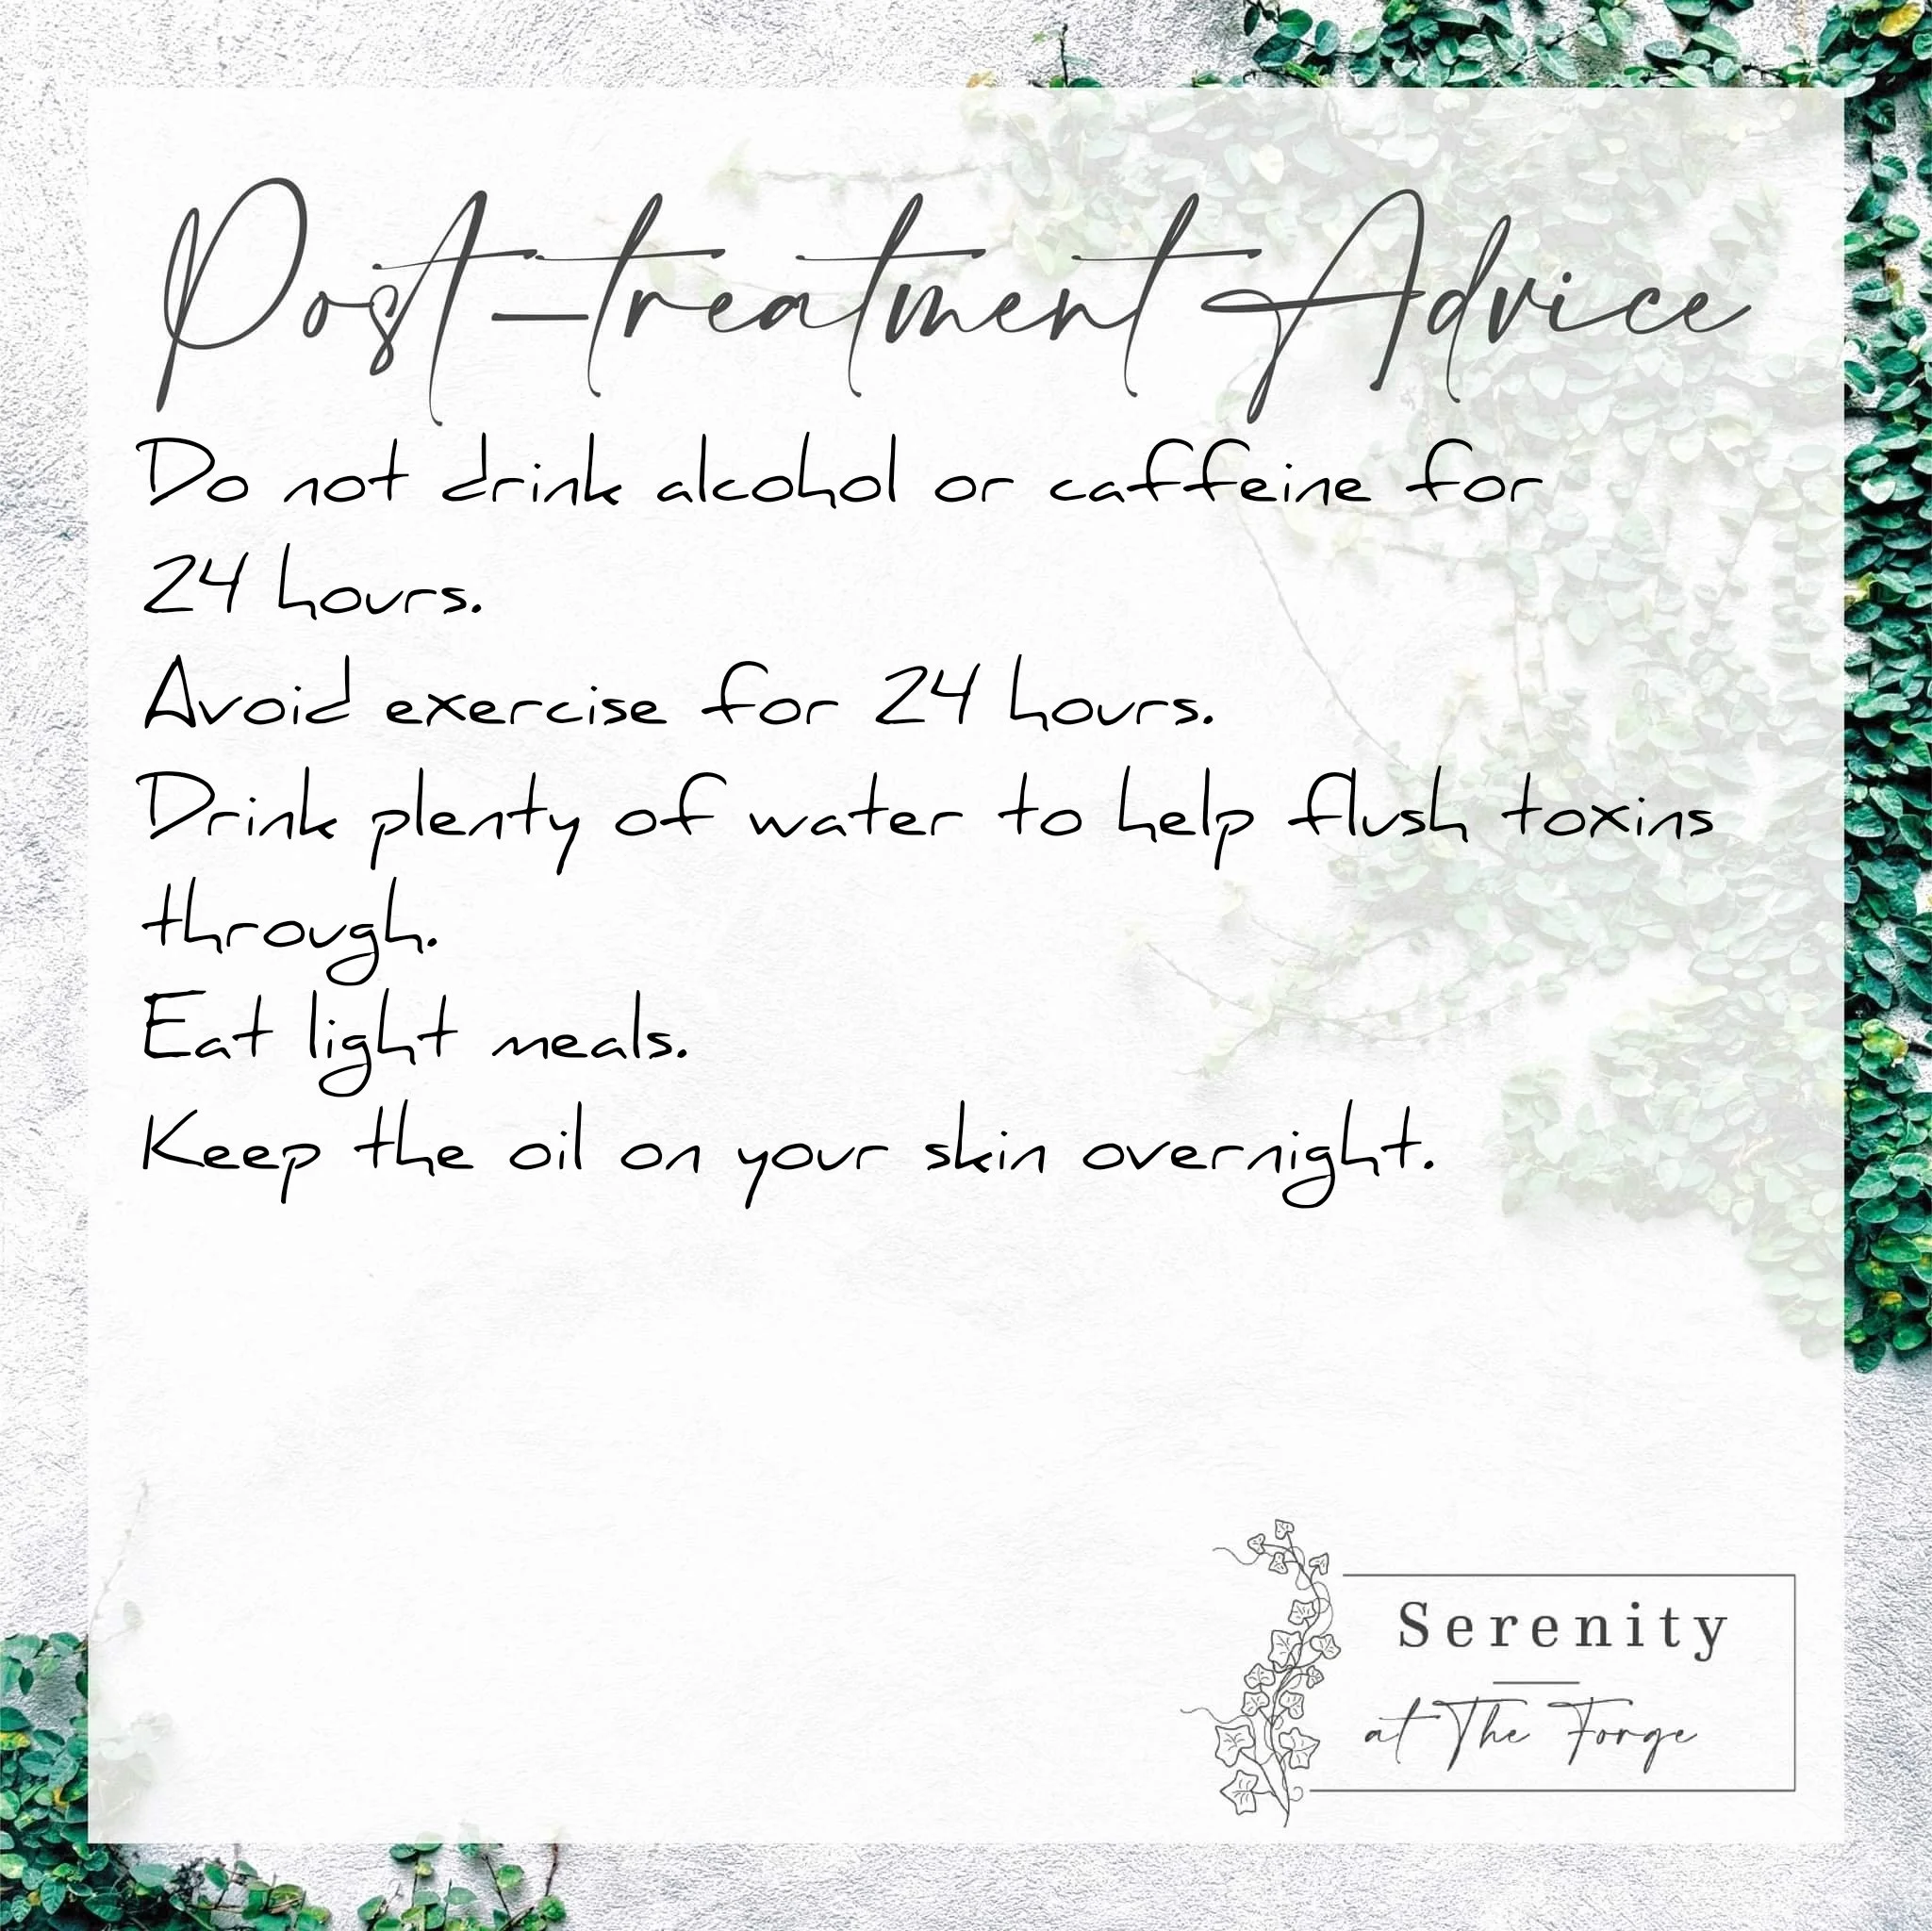 Post-treatment Advice
Do not drink alcohol or caffeine for
24 hours.
Avoid exercise for 24 hours.
Drink plenty of water to help flush toxins
through.
Eat light meals.
Keep the oil on your skin overnight.
Serenity
at The Forge